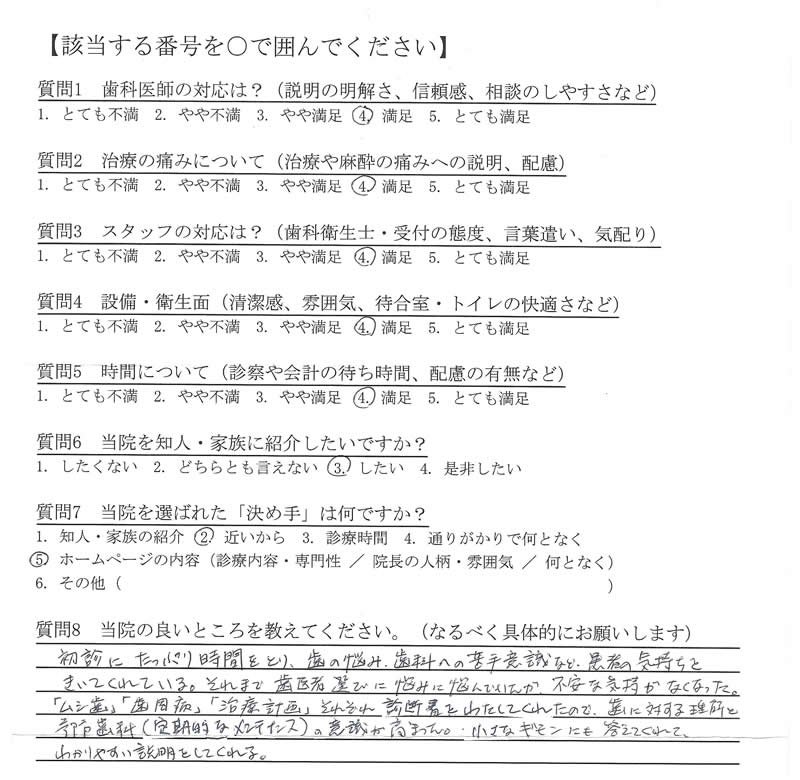 【該当する番号を○で囲んでください】
質問1 歯科医師の対応は？（説明の明解さ、信頼感、相談のしやすさなど）
1. とても不満 2. やや不満 3. やや満足 4. 満足 5. とても満足
質問2 治療の痛みについて（治療や麻酔の痛みへの説明、配慮）
1. とても不満 2. やや不満 3. やや満足 4. 満足 5. とても満足
質問3 スタッフの対応は？（歯科衛生士・受付の態度、言葉遣い、気配り）
1. とても不満 2. やや不満 3. やや満足 4. 満足 5. とても満足
質問4 設備・衛生面（清潔感、雰囲気、待合室・トイレの快適さなど）
1. とても不満 2. やや不満 3. やや満足 4. 満足 5. とても満足
質問5 時間について（診察や会計の待ち時間、配慮の有無など）
1. とても不満 2. やや不満 3. やや満足 4. 満足 5. とても満足
質問6 当院を知人・家族に紹介したいですか？
1. したくない 2. どちらとも言えない 3. したい 4. 是非したい
質問7 当院を選ばれた「決め手」は何ですか？
1. 知人・家族の紹介 2. 近いから 3. 診療時間 4. 通りがかりで何となく
5. ホームページの内容（診療内容・専門性 ／ 院長の人柄・雰囲気 ／ 何となく）
6. その他（ ）
質問8 当院の良いところを教えてください。（なるべく具体的にお願いします）
初診にたっぷり時間をとり、歯の悩み、歯科への苦手意識など、患者の気持ちを
きいてくれている。それまで歯医者選びに悩みに悩んでいたが、不安な気持がなくなった。
「ムシ歯」「歯周病」「治療計画」それぞれ診断書をわたしてくれたので、歯に対する理解と
予防歯科（定期的なメンテナンス）の意識が高まった。小さなギモンにも答えてくれて、
わかりやすい説明をしてくれる。